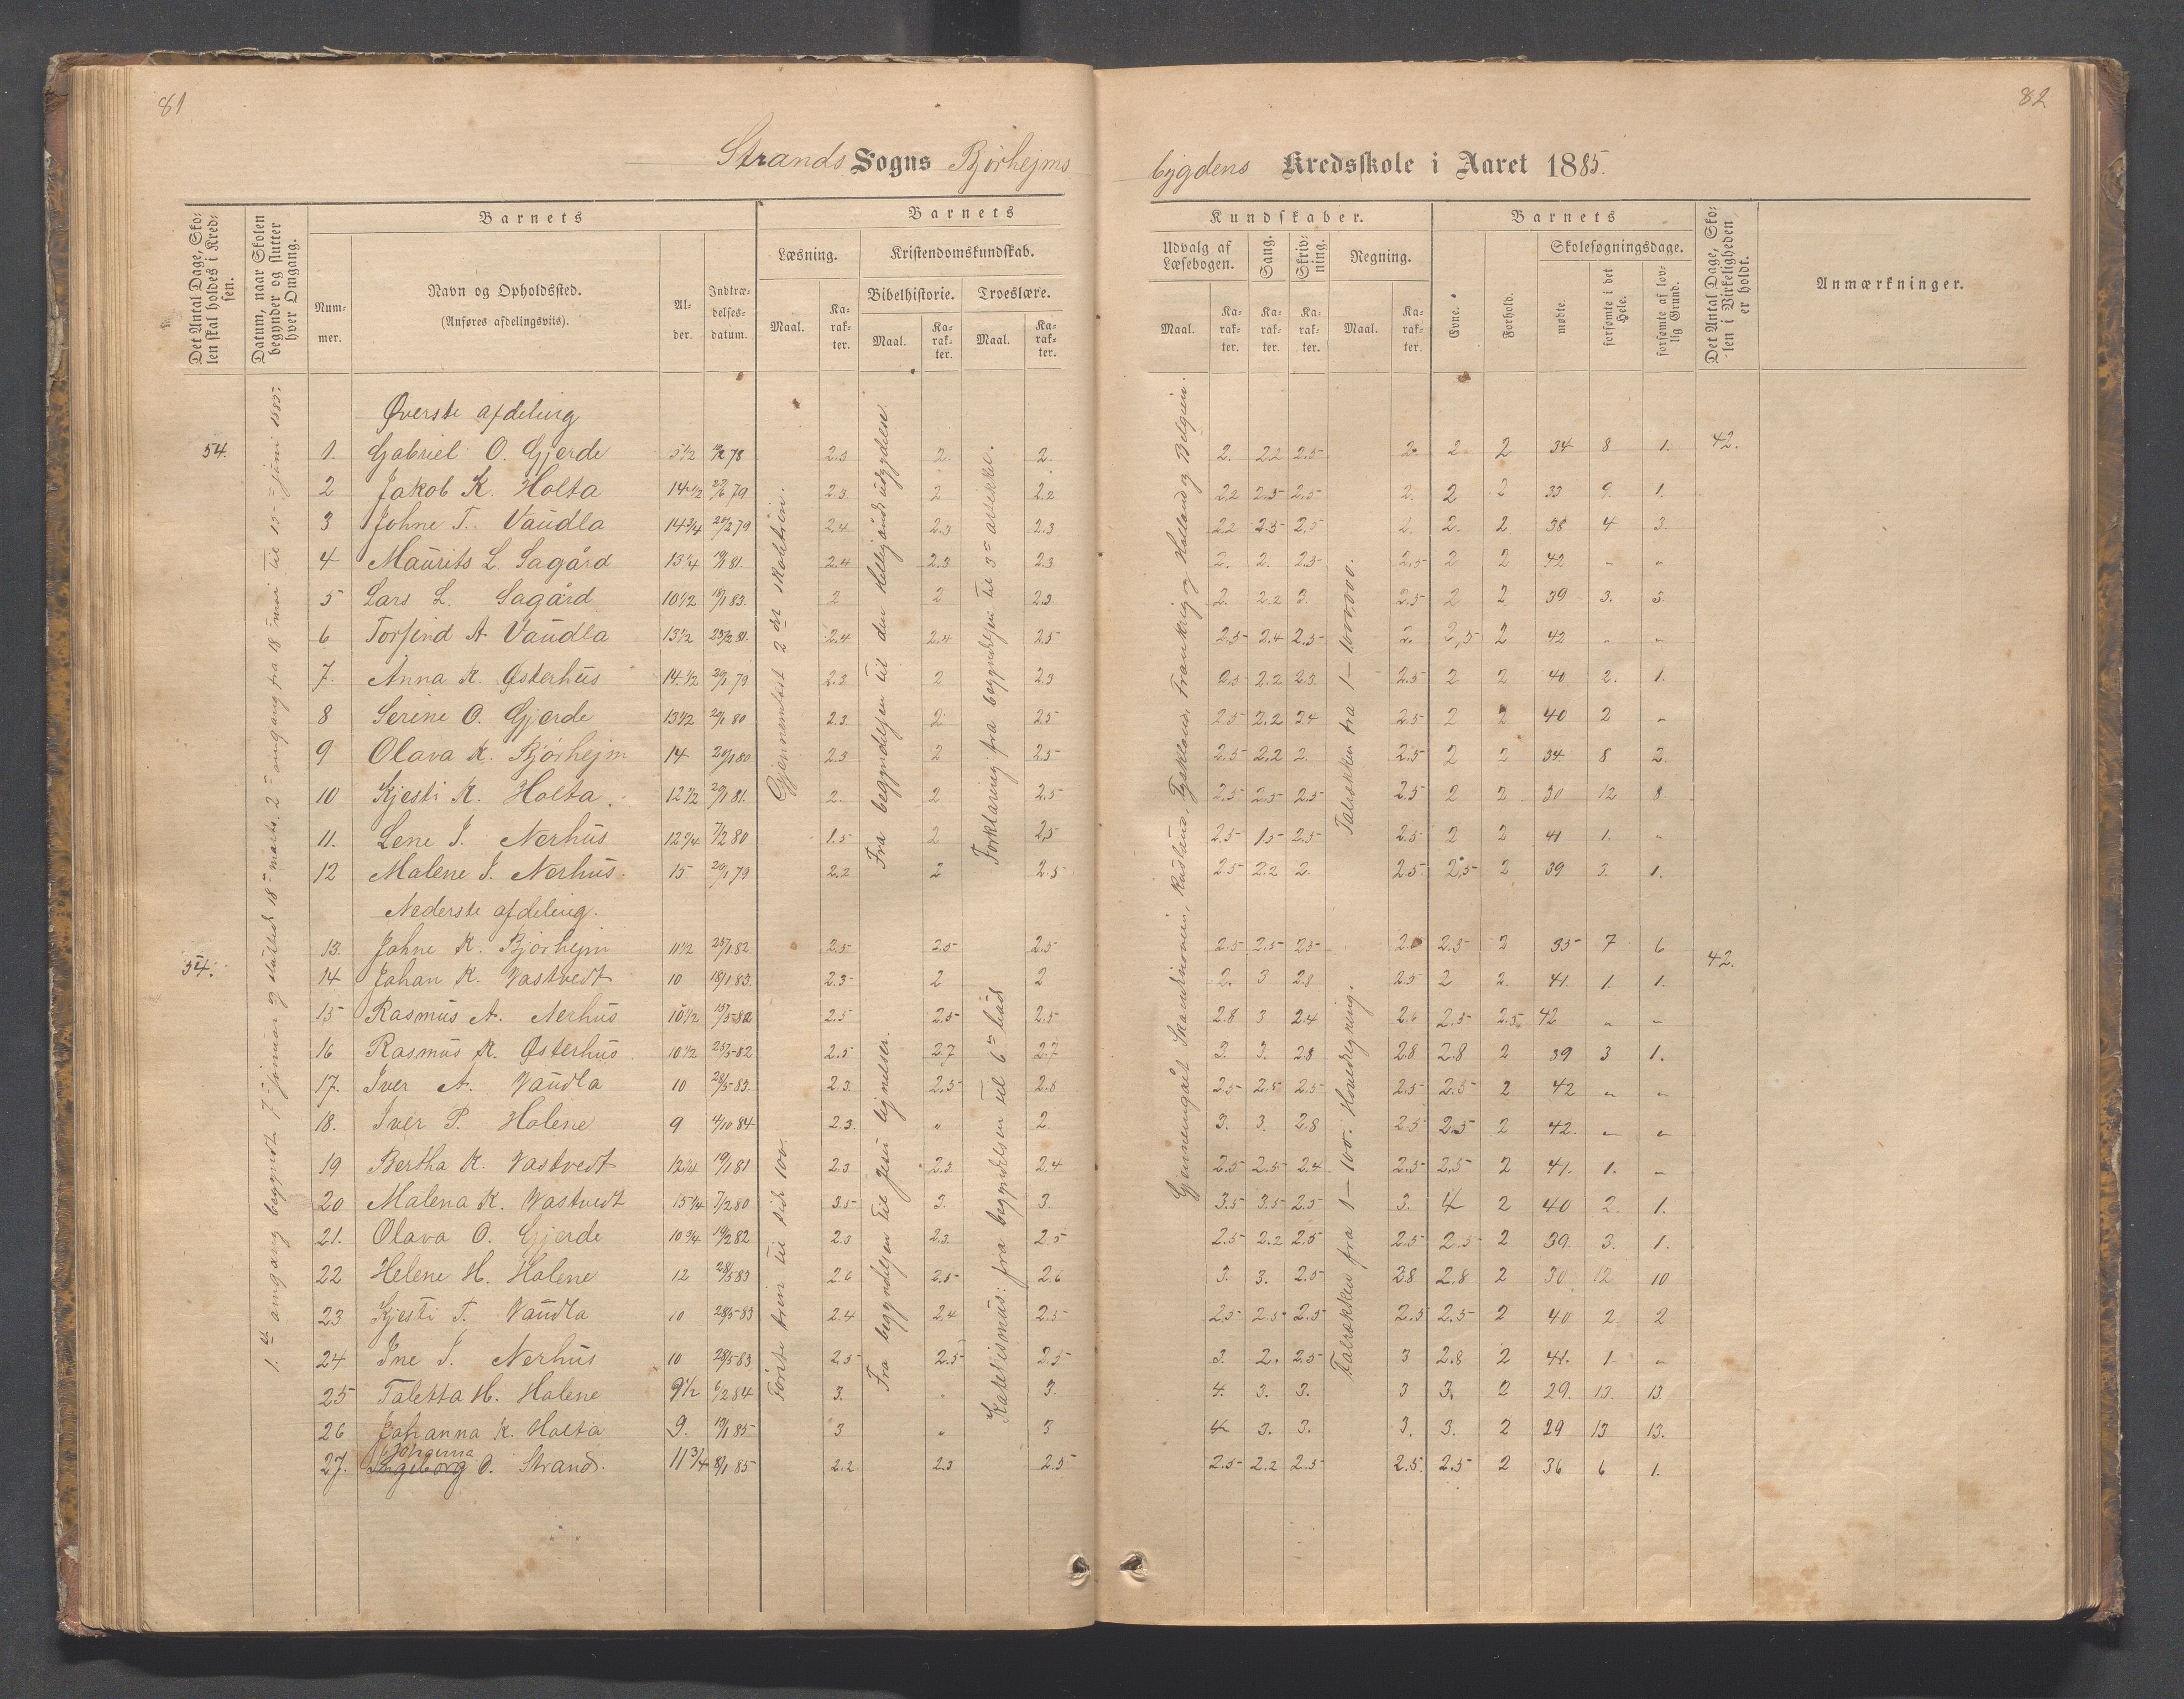 81
82
Strands Sogns Bjørhejms
bygdens Kredsskole i Aaret 1885.
Det Antal Dage, Skolen skal holdes i Kredsen.
Datum, naar Skolen begynder og slutter hver Omgang.
Barnets
Nummer.
Navn og Opholdssted.
(Anføres afdelingsvils).
Alder.
Indtrædelsesdatum.
Barnets
Læsning.
Kristendomskundskab.
Bibelhistorie. Troeslære.
Maal. Karakter. Maal. Karakter. Maal. Karakter.
Kundskaber.
Udvalg af Læsebogen. Sang. Skrivning. Regning.
Maal. Karakter. Karakter. Karakter. Maal. Karakter.
Barnets
Evne. Forhold.
Skolesøgningsdage.
mødte. forsømte i det Hele. forsømte af lovlig Grund.
Det Antal Dage, Skolen i Virkeligheden er holdt.
Anmærkninger.
Gjennemlæst 2det skoletrin.
Fra begyndelsen til den Helligånds udgydelse.
Forklaring fra begyndelsen til 3= artikkel.
Talrækken fra 1–1000000.
Første trin til sid. 100.
Fra begyndelsen til Jesu lignelser.
Katekismus: fra begyndelsen til 6=
Talrækken fra 1–100. Hovedregning.
Øverste afdeling
54. 1. Gabriel O. Gjerde 2.3 2. 2. 2. 2.2 2.5 2. 2 2 34 8 1. 42.
2 Jakob K. Holta 14 1/2 2.3. 2 2.2 2.2 2.5 2.5 2. 2 2 33 9. 1.
3 Johne T. Vaudla 14 3/4 2.4 2.3 2.3 2.2 2.5 2,5 2. 2. 2 38 4 3.
4 Maurits L. Sagård 13 1/4 2.4 2.3 2.3 2. 2. 2.5 2.5 2 2 42 " "
5 Lars L. Sagård 10 1/2 18/1 83. 2 2 2.3. 2. 2.2 3. 2.5 2 2 39 3. 3.
6 Torfind A. Vaudla 13 1/2 2.4 2.4 2.5 2.5 2.4 2.5 2. 2,5 2 42 " "
7. Anna K. Østerhus 14 1/2 20/1 79 2.3 2 2.3 2.5 2.2 2.3. 2.5 2 2 40 2. 1.
8 Serine O. Gjerde 13 1/2 2.3. 2 2.5 2.5 2.2 2.4 2.5 2 2 40 2 "
9 Olava K. Bjørhejm 14 20/1 80 2.3 2 2.5 2.5 2.2 2. 2.5 2 2 34 8 2.
10 Kjesti K. Holta 12 1/2 20/1 81. 2. 2 2.5 2.5 2.5 2.5 2.5 2 2 30 12 8.
11. Lene J. Nerhus 12 3/4 7/2 80 1.5 2 2,5 2.5 1.5 2.5 2.5 2 2 41 1. "
12 Malene J. Nerhus. 15 20/1 79 2.2 2 2.5 2.5 2.2 2. 2.5 2,5 2 39 3. 1.
Nederste afdeling.
54. 13. Johne K. Bjørhejm 11 1/2 2.5 2.5 2.5 2.5 2.5 2.5 2.5 2 35 7 6 42.
14 Johan K. Vastvedt 10 18/1 83. 2.5 2 2 2. 3 2.8 2.5 2 2. 41. 1. 1.
15 Rasmus A. Nerhus 10 1/2 2.5 2.5 2.5 2.8 3 2.4 2.5 2.5 42 " "
16 Rasmus K. Østerhus 10 1/2 25/5 82 2.5 2.7 2.7 3. 3. 2.8 2.8 2.8 2 39 3 1.
17. Iver A. Vaudla 10 28/5 83. 2.3. 2.5 2.8 2.5 2.5 2.5 2.5 2.5 2 42 " "
18. Iver P. Holene 9 4/10 84 2.3. " 2. 3. 3. 2.8 2.5 2.5 2 42. " "
19 Bertha K. Vastvedt 12 3/4 19/1 81 2.3 2.3 2.4 2.5 2.5 2.4 2.5 2,5 2 41. 1. "
20 Malena K. Vastvedt 15 1/4 7/2 80 3.5 3. 3. 3.5 3.5 2.5 3. 4 2 40 2. 1.
21. Olava O. Gjerde 10 3/4 19/2 82 2.3 2.3. 2.5 2.5 2.2 2.5 2.5 2.5 2 39. 3. 1.
22 Helene H. Holene 12 28/5 83 2.6 2.5 2.6 3. 3. 2.5 2.8 2.8 2 30 12 10
23 Kjesti T. Vaudla 10 28/5 83 2.4 2,4 2.5 2.5 2.5 2.5 2.5 2.5 2 40 2 2
24 Ine J. Nerhus 10 28/5 83. 2,5 2.5 2.5 3. 2. 2.5 3 2.8 2 41. 1 "
25 Taletta H. Holene 9 1/2 6/2 84 3. " 3. 4. 3. 3. 3 3. 2 29. 13. 13.
26 Johanna K. Holta 9. 19/1 85 3 " 3 4 3. 3. 3. 3. 2 29 13 13.
27. Johanna O. Strand. 11 3/4 8/1 85 2.2 2.3 2.5 2.5 2.2 2.5 2.5. 2.5 2 36 6 1.